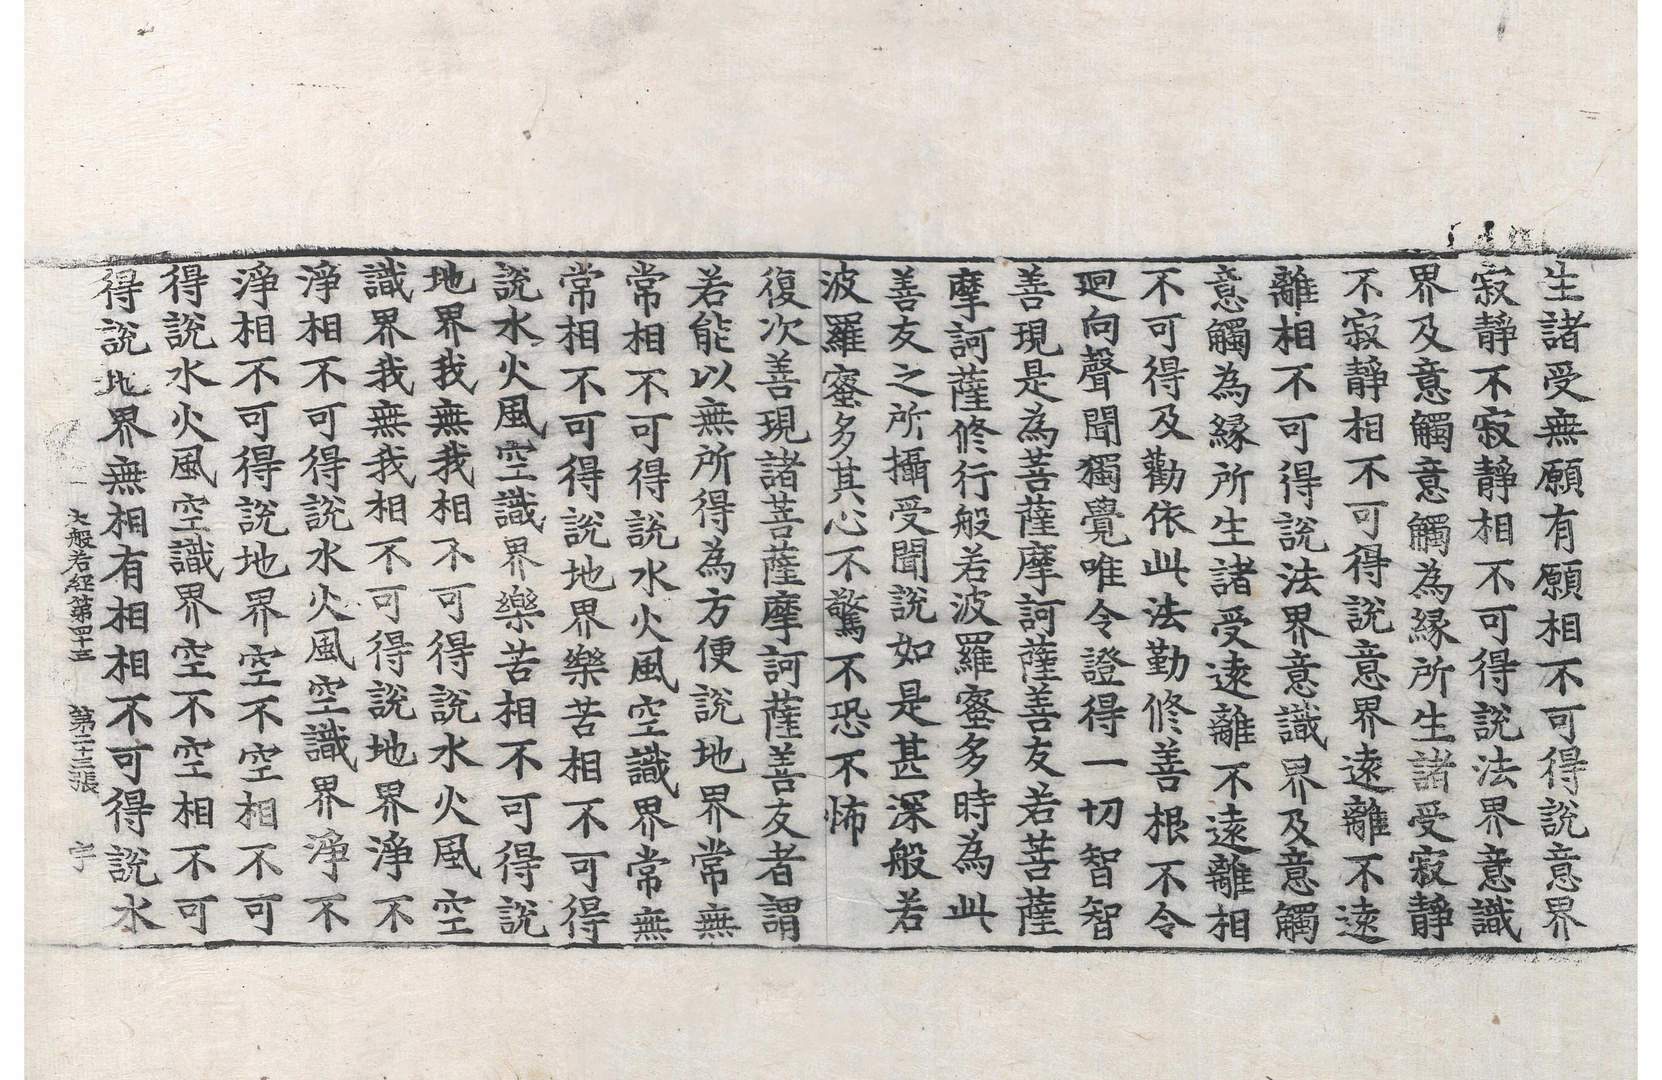 生諸受無願有願相不可得說意界
寂靜不寂靜相不可得說法界意識
界及意觸意觸為緣所生諸受寂靜
不寂靜相不可得說意界遠離不遠
離相不可得說法界意識界及意觸
意觸為緣所生諸受遠離不遠離相
不可得及勸依此法勤修善根不令
迴向聲聞獨覺唯令證得一切智智
善現是為菩薩摩訶薩善友若菩薩
摩訶薩修行般若波羅蜜多時為此
善友之所攝受聞說如是甚深般若
波羅蜜多其心不驚不恐不怖
復次善現諸菩薩摩訶薩善友者謂
若能以無所得為方便說地界常無
常相不可得說水火風空識界常無
常相不可得說地界樂苦相不可得
說水火風空識界樂苦相不可得說
地界我無我相不可得說水火風空
識界我無我相不可得說地界淨不
淨相不可得說水火風空識界淨不
淨相不可得說地界空不空相不可
得說水火風空識界空不空相不可
得說地界無相有相相不可得說水
大般若經第四十三 第二十三張 宇